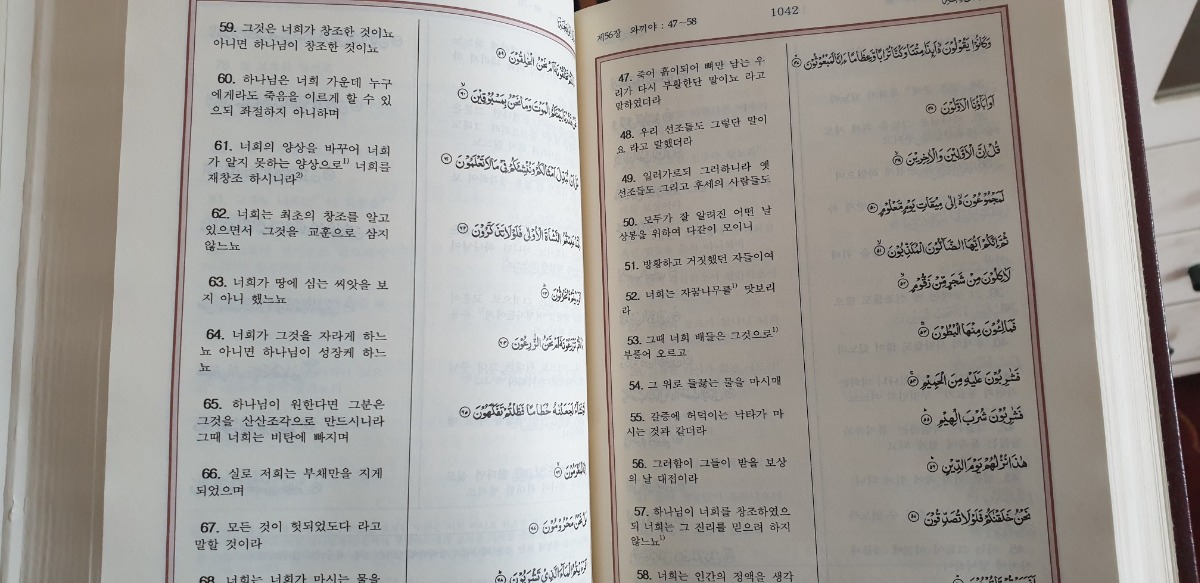 제56장 와끼야 : 47~58
1042
47. 죽어 흙이되어 뼈만 남는 우
리가 다시 부활한단 말이뇨 라고
말하였더라
48. 우리 선조들도 그렇단 말이
요 라고 말했더라
49. 일러가로되 그러하니라 옛
선조들도 그리고 후세의 사람들도
50. 모두가 잘 알려진 어떤 날
상봉을 위하여 다같이 모이니
51. 방황하고 거짓했던 자들이여
52. 너희는 자꿈나무를1) 맛보리
라
53. 그때 너희 배들은 그것으로1)
부풀어 오르고
54. 그 위로 들끓는 물을 마시매
55. 갈증에 허덕이는 낙타가 마
시는 것과 같더라
56. 그러함이 그들이 받을 보상
의 날 대접이라
57. 하나님이 너희를 창조하였으
되 너희는 그 진리를 믿으려 하지
않느뇨1)
58. 너희는 인간의 정액을 생각
وَكَانُوا يَقُولُونَ أَئِذَا مِتْنَا وَكُنَّا تُرَابًا وَعِظَامًا أَإِنَّا لَمَبْعُوثُونَ ٤٧
أَوَآبَاؤُنَا الْأَوَّلُونَ ٤٨
قُلْ إِنَّ الْأَوَّلِينَ وَالْآخِرِينَ ٤٩
لَمَجْمُوعُونَ إِلَىٰ مِيقَاتِ يَوْمٍ مَعْلُومٍ ٥٠
ثُمَّ إِنَّكُمْ أَيُّهَا الضَّالُّونَ الْمُكَذِّبُونَ ٥١
لَآكِلُونَ مِنْ شَجَرٍ مِنْ زَقُّومٍ ٥٢
فَمَالِئُونَ مِنْهَا الْبُطُونَ ٥٣
فَشَارِبُونَ عَلَيْهِ مِنَ الْحَمِيمِ ٥٤
فَشَارِبُونَ شُرْبَ الْهِيمِ ٥٥
هَٰذَا نُزُلُهُمْ يَوْمَ الدِّينِ ٥٦
نَحْنُ خَلَقْنَاكُمْ فَلَوْلَا تُصَدِّقُونَ ٥٧
59. 그것은 너희가 창조한 것이뇨
아니면 하나님이 창조한 것이뇨
60. 하나님은 너희 가운데 누구
에게라도 죽음을 이르게 할 수 있
으되 좌절하지 아니하며
61. 너희의 양상을 바꾸어 너희
가 알지 못하는 양상으로1) 너희를
재창조 하시니라2)
62. 너희는 최초의 창조를 알고
있으면서 그것을 교훈으로 삼지
않느뇨
63. 너희가 땅에 심는 씨앗을 보
지 아니 했느뇨
64. 너희가 그것을 자라게 하느
뇨 아니면 하나님이 성장케 하느
뇨
65. 하나님이 원한다면 그분은
그것을 산산조각으로 만드시니라
그때 너희는 비탄에 빠지며
66. 실로 저희는 부채만을 지게
되었으며
67. 모든 것이 헛되었도다 라고
말할 것이라
68. 너희는 너희가 마시는 물을
تَخْلُقُونَهُ أَمْ نَحْنُ الْخَالِقُونَ ٥٩
قَدَّرْنَا بَيْنَكُمُ الْمَوْتَ وَمَا نَحْنُ بِمَسْبُوقِينَ ٦٠
أَنْ نُبَدِّلَ أَمْثَالَكُمْ وَنُنْشِئَكُمْ فِي مَا لَا تَعْلَمُونَ ٦١
عَلِمْتُمُ النَّشْأَةَ الْأُولَىٰ فَلَوْلَا تَذَكَّرُونَ ٦٢
تَحْرُثُونَ ٦٣
تَزْرَعُونَهُ أَمْ نَحْنُ الزَّارِعُونَ ٦٤
لَجَعَلْنَاهُ حُطَامًا فَظَلْتُمْ تَفَكَّهُونَ ٦٥
لَمُغْرَمُونَ ٦٦
نَحْنُ مَحْرُومُونَ ٦٧
الْمَاءَ الَّذِي تَشْرَبُونَ ٦٨